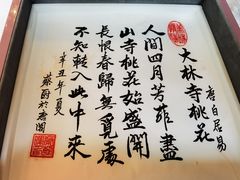 唐白居易
大林寺桃花
人間四月芳菲盡
山寺桃花始盛開
長恨春歸無覓處
不知轉入此中來
辛丑年夏